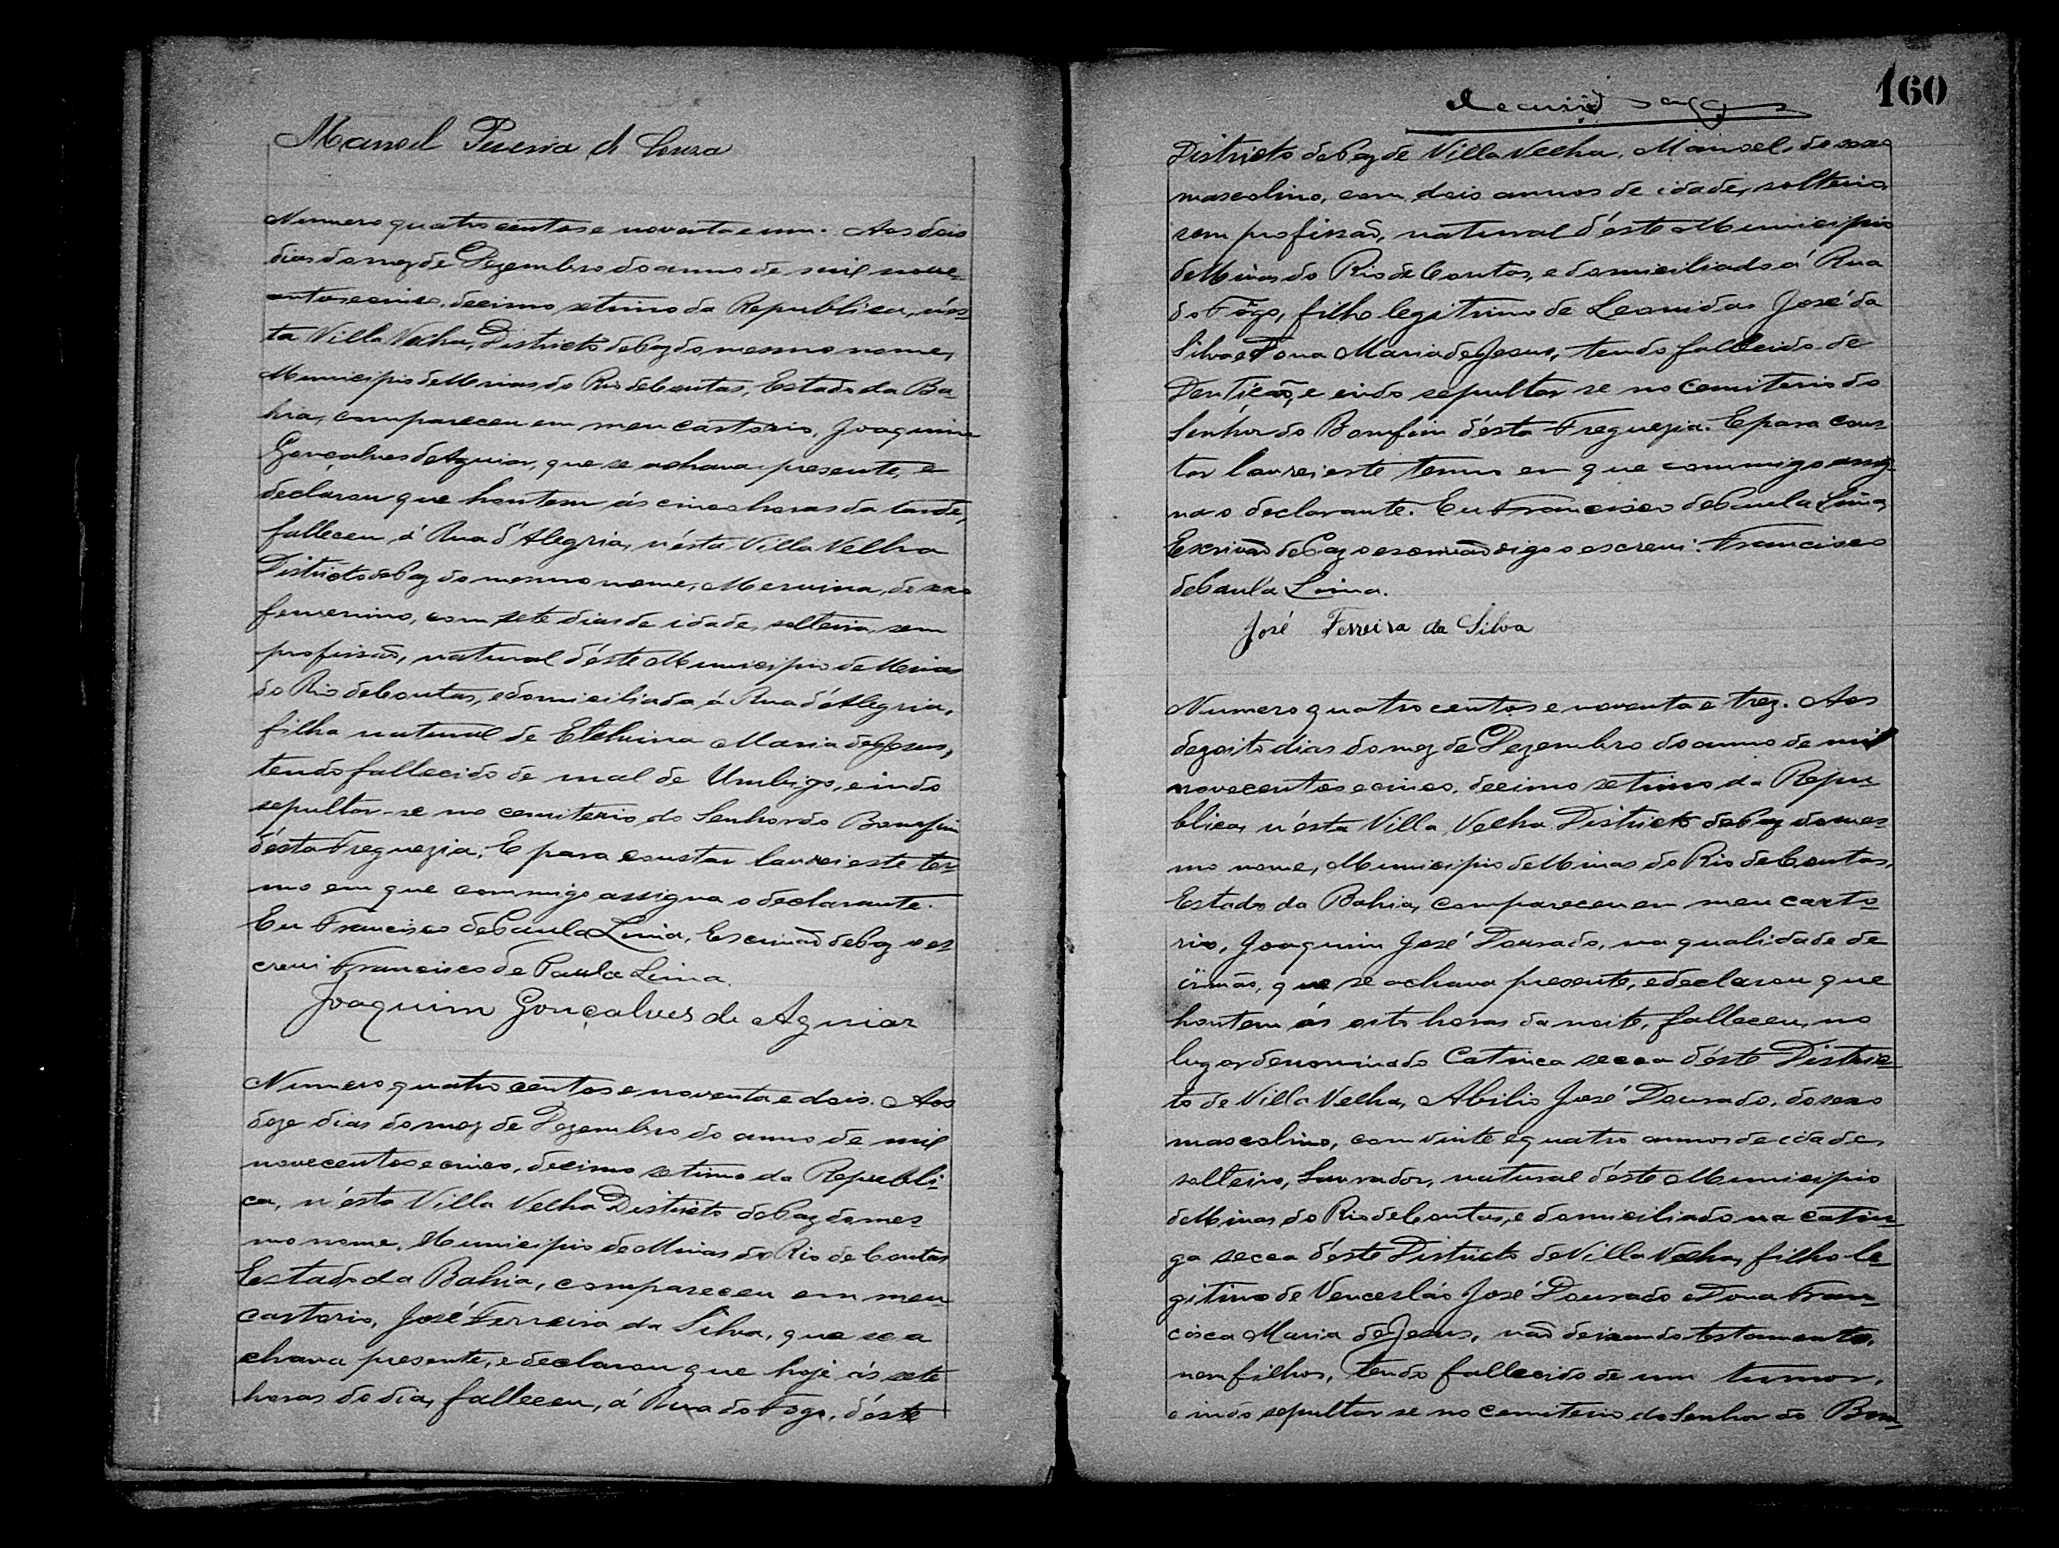 Manoel Pereira de Souza
Numero quatro centos e noventa e um. Aos dois
dias do mez de Dezembro do anno de mil nove-
centos e cinco, decimo setimo da Republica, n'es-
ta Villa Velha, Districto de Paz do mesmo nome,
Municipio de Minas do Rio de Contas, Estado da Ba-
hia, compareceu em meu cartorio, Joaquim
Gonçalves de Aguiar, que se achava presente, e
declarou que hontem ás cinco horas da tarde,
falleceu, á Rua d'Alegria, n'esta Villa Velha
Districto de Paz do mesmo nome, do sexo
femenino, com sete dias de idade, solteira, sem
profissão, natural d'este Municipio de Minas
do Rio de Contas, e domiciliada á Rua d'Alegria,
filha natural de Maria de Jesus,
tendo fallecido de mal de Umbigo, e indo
sepultar-se no cemiterio do Senhor do Bomfim
d'esta Freguezia. E para constar lavrei este ter-
mo em que commigo assigna o declarante.
Eu Francisco de Paula Lima, Escrivão de Paz o es-
crevi Francisco de Paula Lima.
Joaquim Gonçalves de Aguiar
Numero quatro centos e noventa e dois. Aos
doze dias do mez de Dezembro do anno de mil
novecentos e cinco, decimo setimo da Republi-
ca, n'esta Villa Velha Districto de Paz do mes-
mo nome, Municipio de Minas do Rio de Contas
Estado da Bahia, compareceu em meu
cartorio, José Ferreira da Silva, que se a
chava presente, e declarou que hoje ás sete
horas do dia, falleceu, á Rua do Fogo, d'este
160
Districto de Paz de Villa Velha, Manoel, do sexo
mascolino, com dois annos de idade, solteiro
sem profissão, natural d'este Municipio
de Minas do Rio de Contas, e domiciliado á Rua
do Fôgo, filho legitimo de Leonidas José da
Silva e Dona Maria de Jesus, tendo fallecido de
Dentição, e indo sepultar se no cemiterio do
Senhor do Bomfim d'esta Freguezia. E para cons-
tar lavrei este termo em que commigo assig-
na o declarante. Eu Francisco de Paula Lima,
Escrivão de Paz o escrivão digo o escrevi. Francisco
de Paula Lima.
José Ferreira da Silva
Numero quatro centos e noventa e trez. Aos
dezoito dias do mez de Dezembro do anno de mil
novecentos e cinco, decimo setimo da Repu-
blica, n'esta Villa Velha Districto de Paz do mes-
mo nome, Municipio de Minas do Rio de Contas,
Estado da Bahia, compareceu em meu carto-
rio, Joaquim José Dourado, na qualidade de
irmão, que se achava presente, e declarou que
hontem ás oito horas da noite, falleceu, no
lugar denominado Catinca secca d'este Distric-
to de Villa Velha, Abilio José Dourado, do sexo
mascolino, com vinte e quatro annos de idade,
solteiro, Lavrador, natural d'este Municipio
de Minas do Rio de Contas, e domiciliado na catin-
ga secca d'este Districto de Villa Velha, filho le-
gitimo de Venceslão José Dourado e Dona Fran-
cisca Maria de Jesus, não deixando testamento,
nem filhos, tendo fallecido de um tumor,
e indo sepultar se no cemiterio do Senhor do Bom-